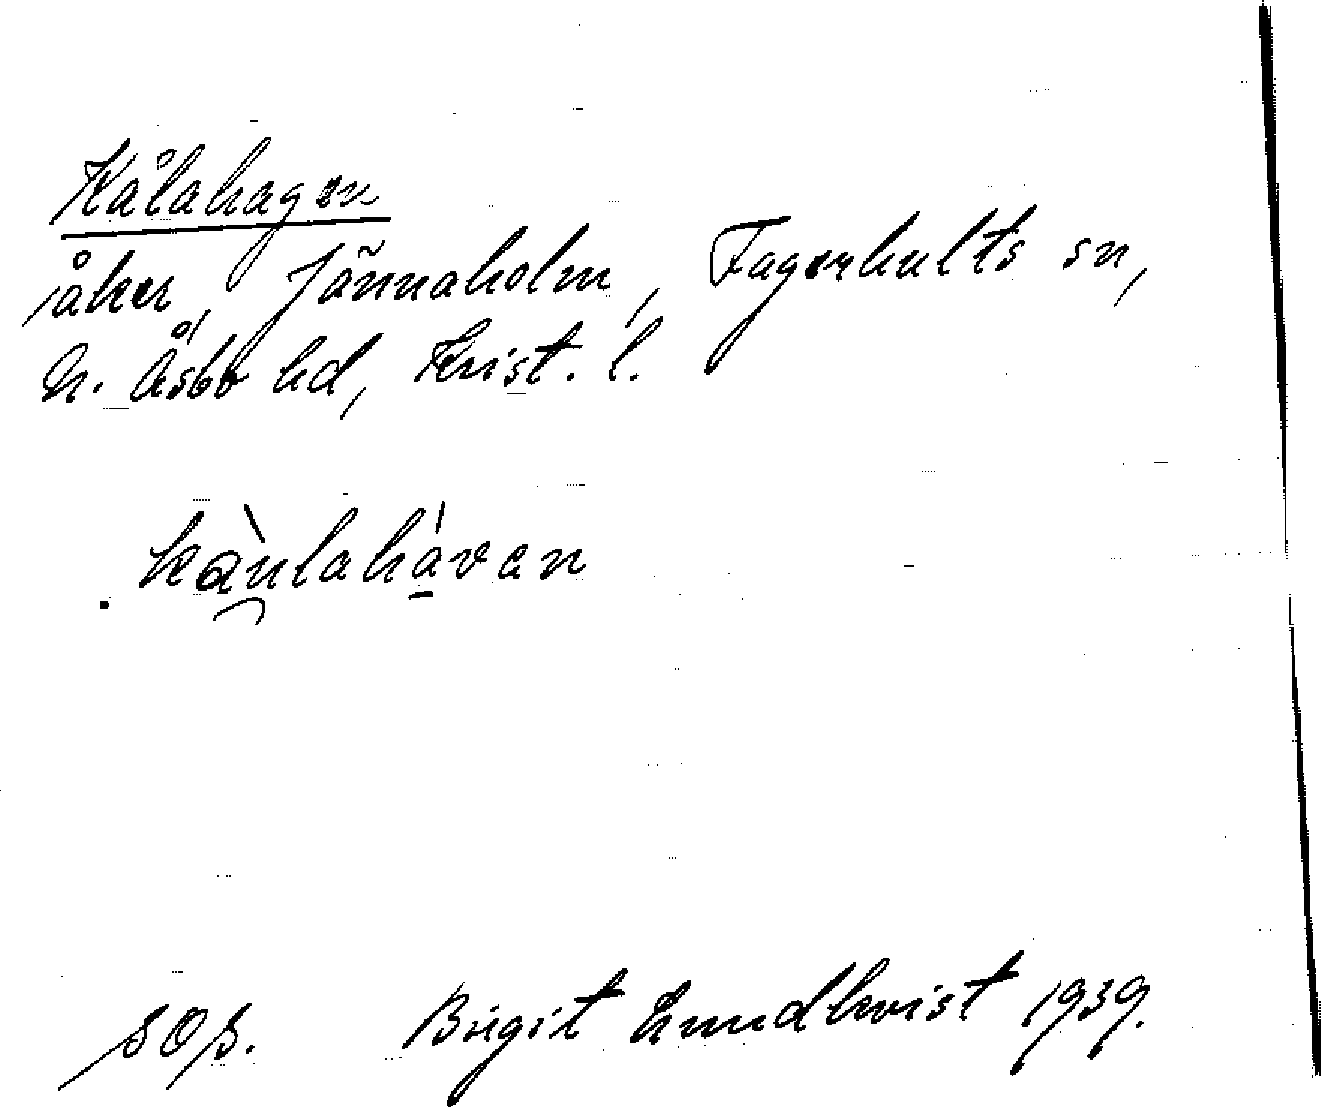 Kålahagen
åker, Jännaholm, Fagerhults sn,
N. Åsbo hd, Krist. l.
kàulahávan
SOS. Birgit Lundkvist 1939.